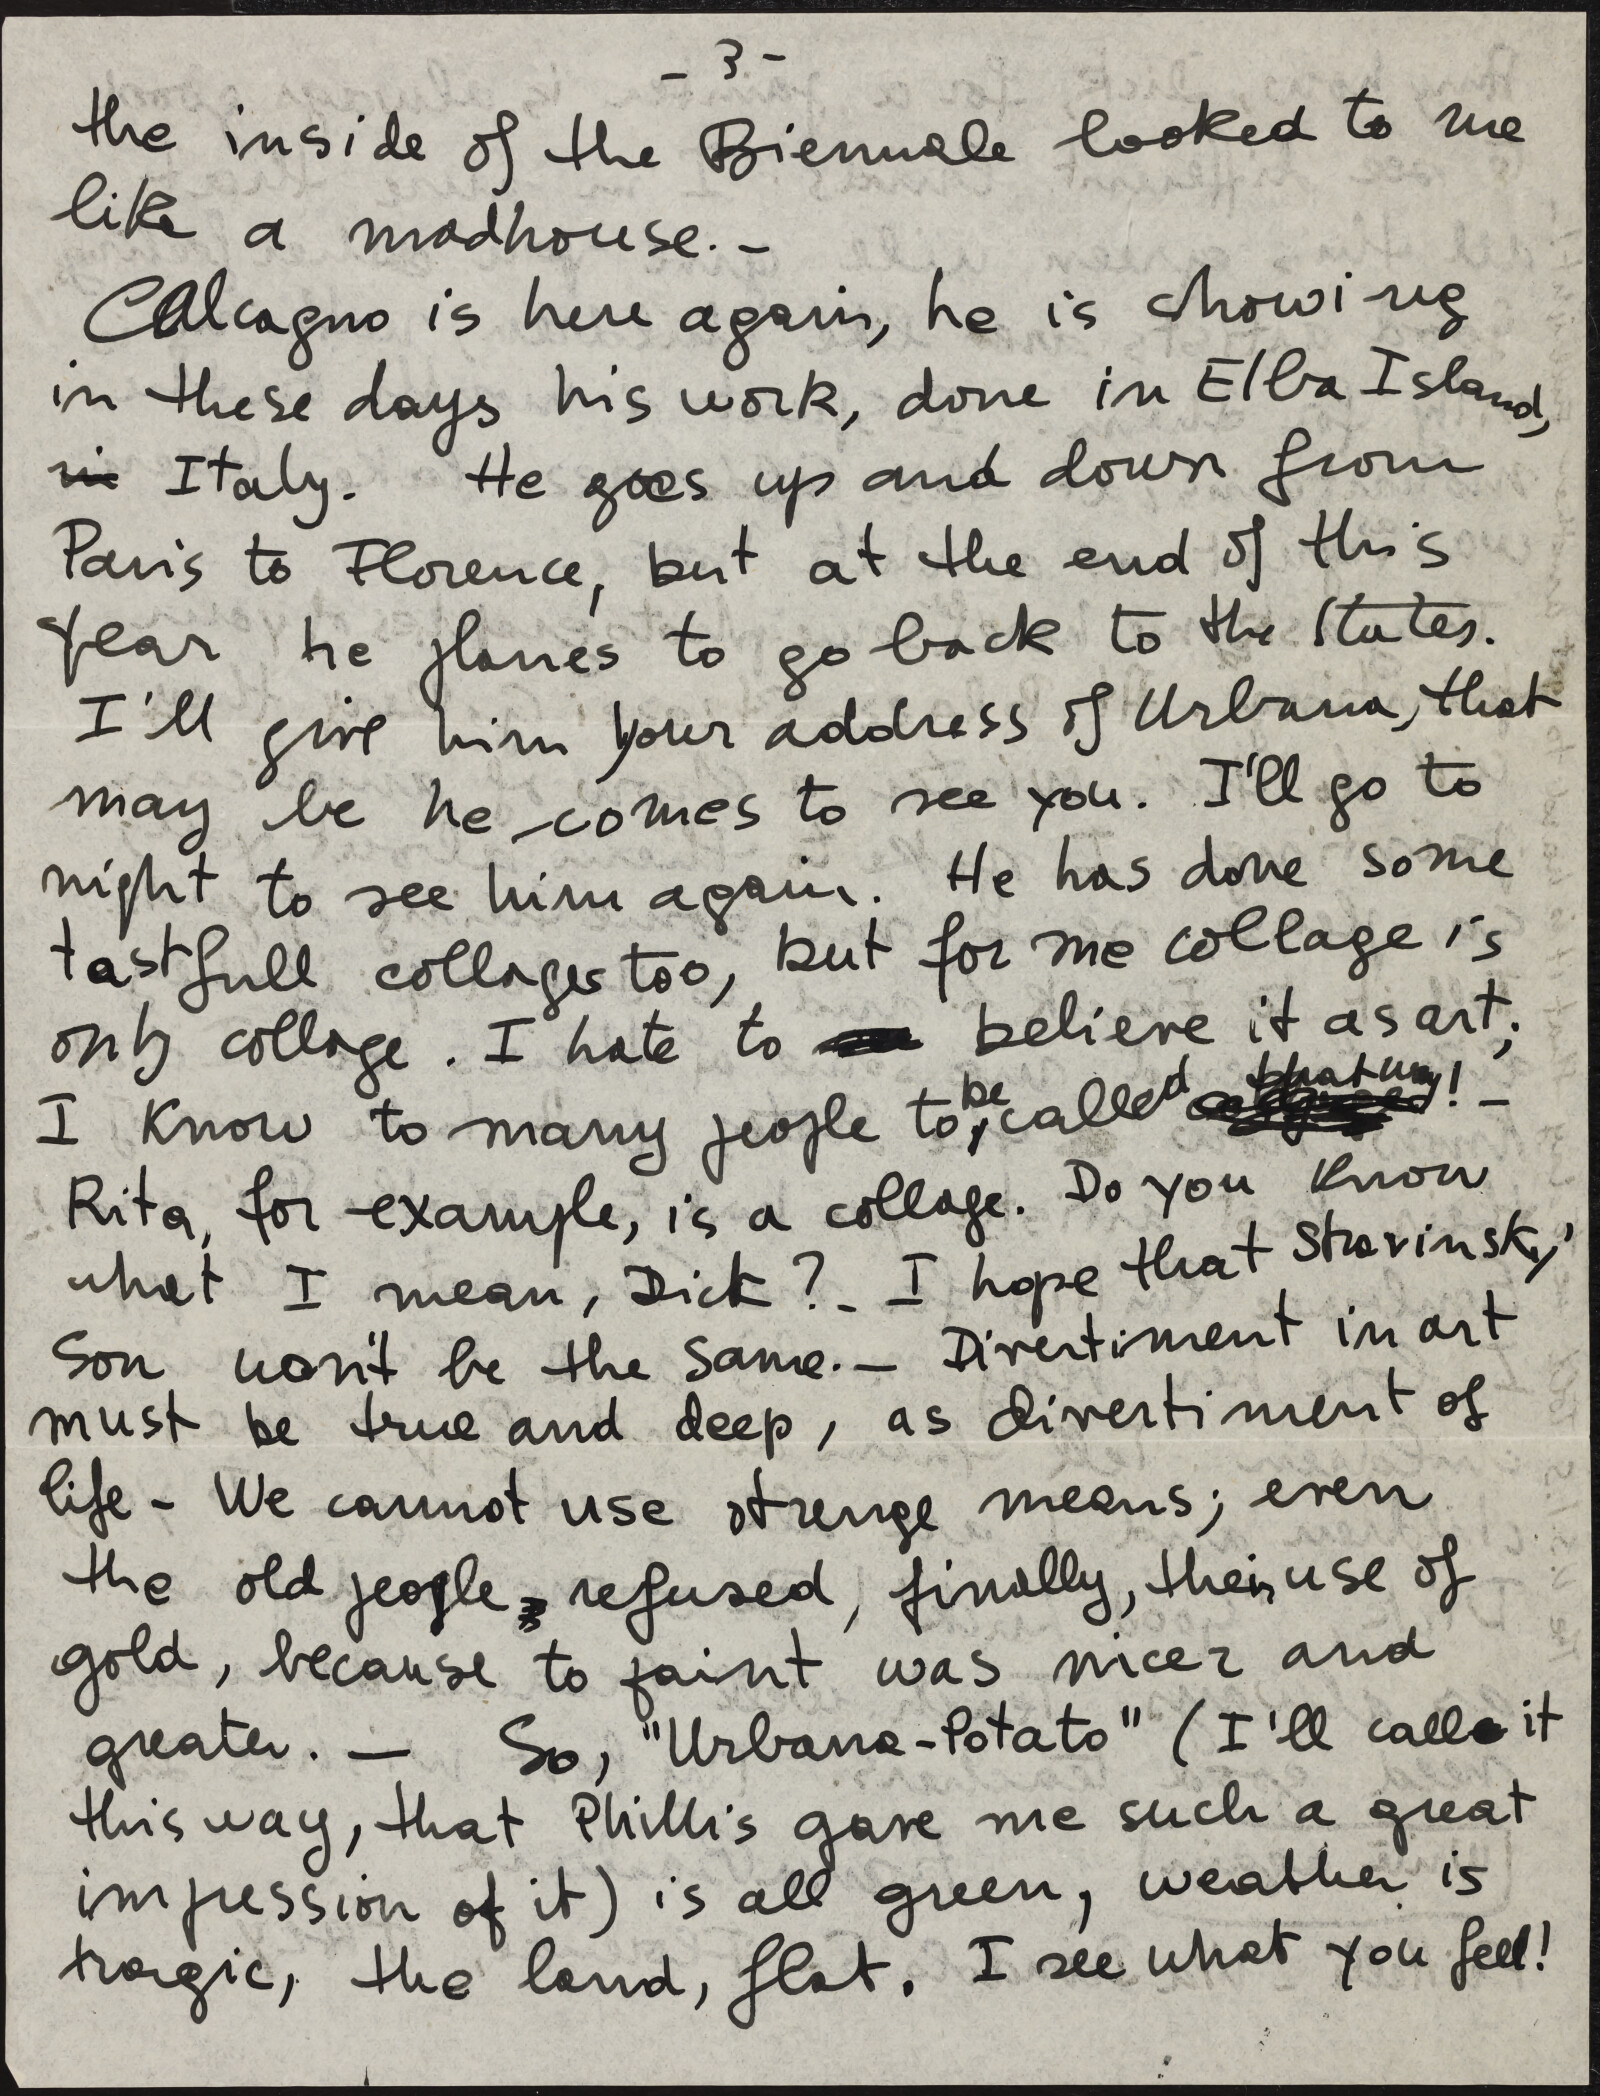 - 3 -
the inside of the Biennale looked to me
like a madhouse. -
Calcagno is here again, he is showing
in these days his work, done in Elba Island,
in Italy. He goes up and down from
Paris to Florence, but at the end of this
year he planes to go back to the States.
I'll give him your address of Urbana, that
may be he comes to see you. I'll go to
night to see him again. He has done some
tastfull collages too, but for me collage is
only collage. I hate to believe it as art;
I know to many people to be called that way! -
Rita, for example, is a collage. Do you know
what I mean, Dick? - I hope that Stravinsky'
Son won't be the same. - Divertiment in art
must be true and deep, as divertiment of
life - We cannot use strenge means; even
the old people, refused, finally, their use of
gold, because to paint was nicer and
greater. - So, "Urbana-Potato" (I'll call it
this way, that Phillis gave me such a great
impression of it) is all green, weather is
tragic, the land, flat. I see what you feel!